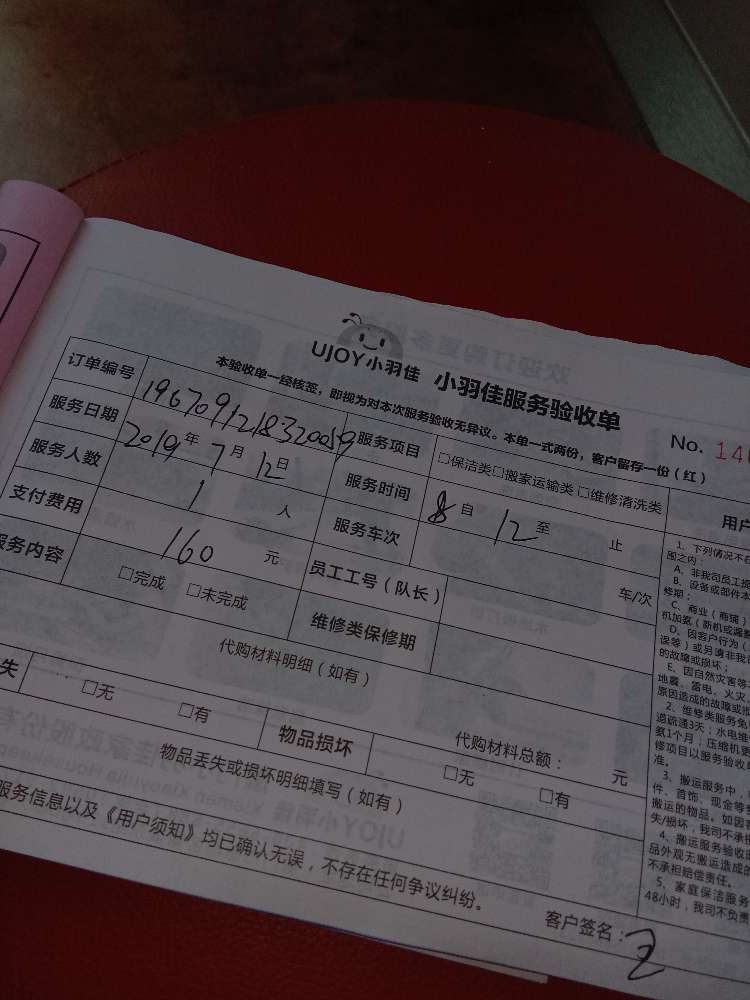 UJOY小羽佳 小羽佳服务验收单
No. 140
本验收单一经核签，即视为对本次服务验收无异议。本单一式两份，客户留存一份（红）
订单编号 1967091218320059 服务项目 □保洁类□搬家运输类□维修清洗类
服务日期 2019年7月12日 服务时间 8自12至 止
服务人数 1 人 服务车次 车/次
支付费用 160 元 员工工号（队长）
服务内容 □完成 □未完成 维修类保修期
代购材料明细（如有）
代购材料总额： 元
失 □无 □有 物品损坏 □无 □有
物品丢失或损坏明细填写（如有）
服务信息以及《用户须知》均已确认无误，不存在任何争议纠纷。
客户签名：
用户
1、下列情况不在
围之内：
A、非我司员工
B、设备或部件本
修期；
C、商业（商铺）
机加氨（新机或漏
D、因客户行为（
误等）或另请非我
的故障或损坏；
E、因自然灾害等
地震、雷电、火灾
原因造成的故障或
2、维修类服务免
道疏通3天；水电维
氨1个月；压缩机更
修项目以服务验收单
准。
3、搬运服务中，
件、首饰、现金等
搬运的物品。如因
失/损坏，我司不承担
4、搬运服务验收
品外观无搬运造成的
不承担赔偿责任。
5、家庭保洁服务
48小时，我司不负责